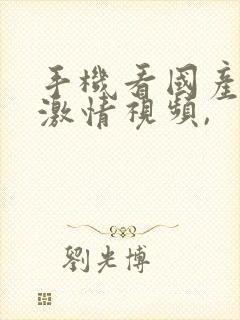 手機看國產
激情視頻,
劉光博